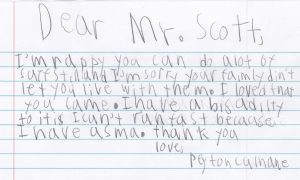 Dear Mr. Scott,
I'm happy you can do alot of
surf still and I'm sorry your faimly din't
let you live with them. I loved that
you came. I have a disadilty
to it is I can't run fast because
I have asma. thank you
love,
Peyton